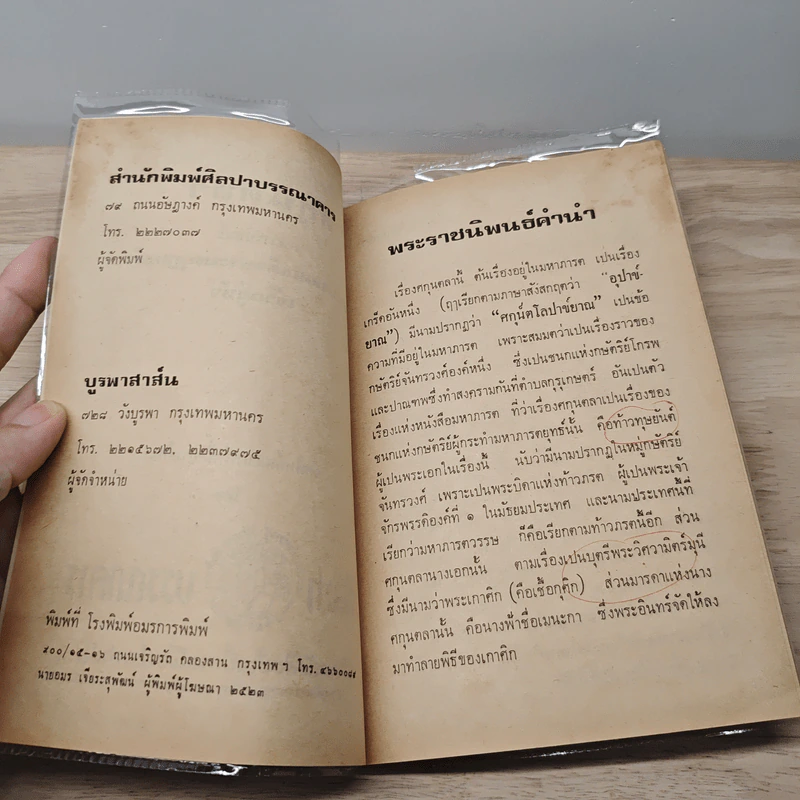 สำนักพิมพ์ศิลปาบรรณาคาร
๗๙ ถนนอัษฎางค์ กรุงเทพมหานคร
โทร. ๒๒๒๗๐๓๗
ผู้จัดพิมพ์
บูรพาสาส์น
๗๒๘ วังบูรพา กรุงเทพมหานคร
โทร. ๒๒๑๕๖๗๒, ๒๒๓๗๙๗๕
ผู้จัดจำหน่าย
พิมพ์ที่ โรงพิมพ์อมรการพิมพ์
๙๐๐/๑๕-๑๖ ถนนเจริญรัถ คลองสาน กรุงเทพ ฯ โทร. ๔๖๖๐๐๘๙
นายอมร เจียระสุพัฒน์ ผู้พิมพ์ผู้โฆษณา ๒๕๒๓
พระราชนิพนธ์คำนำ
เรื่องศกุนตลานี้ ต้นเรื่องอยู่ในมหาภารต เป็นเรื่อง
เกร็ดอันหนึ่ง (ฤๅเรียกตามภาษาสังสกฤตว่า "อุปาข์-
ยาณ") มีนามปรากฏว่า "ศกุน์ตโลปาข์ยาณ" เป็นข้อ
ความที่มีอยู่ในมหาภารต เพราะสมมตว่าเป็นเรื่องราวของ
กษัตริย์จันทรวงศ์องค์หนึ่ง ซึ่งเป็นชนกแห่งกษัตริย์โกรพ
และปาณฑพซึ่งทำสงครามกันที่ตำบลกุรุเกษตร์ อันเป็นตัว
เรื่องแห่งหนังสือมหาภารต ที่ว่าเรื่องศกุนตลาเป็นเรื่องของ
ชนกแห่งกษัตริย์ผู้กระทำมหาภารตยุทธ์นั้น คือท้าวทุษยันต์
ผู้เป็นพระเอกในเรื่องนี้ นับว่ามีนามปรากฏในหมู่กษัตริย์
จันทรวงศ์ เพราะเป็นพระบิดาแห่งท้าวภรต ผู้เป็นพระเจ้า
จักรพรรดิองค์ที่ ๑ ในมัธยมประเทศ และนามประเทศนี้ที่
เรียกว่ามหาภารตวรรษ ก็คือเรียกตามท้าวภรตนี้อีก ส่วน
ศกุนตลานางเอกนั้น ตามเรื่องเป็นบุตรีพระวิศวามิตร์มุนี
ซึ่งมีนามว่าพระเกาศิก (คือเชื้อกุศิก) ส่วนมารดาแห่งนาง
ศกุนตลานั้น คือนางฟ้าชื่อเมนะกา ซึ่งพระอินทร์จัดให้ลง
มาทำลายพิธีของเกาศิก